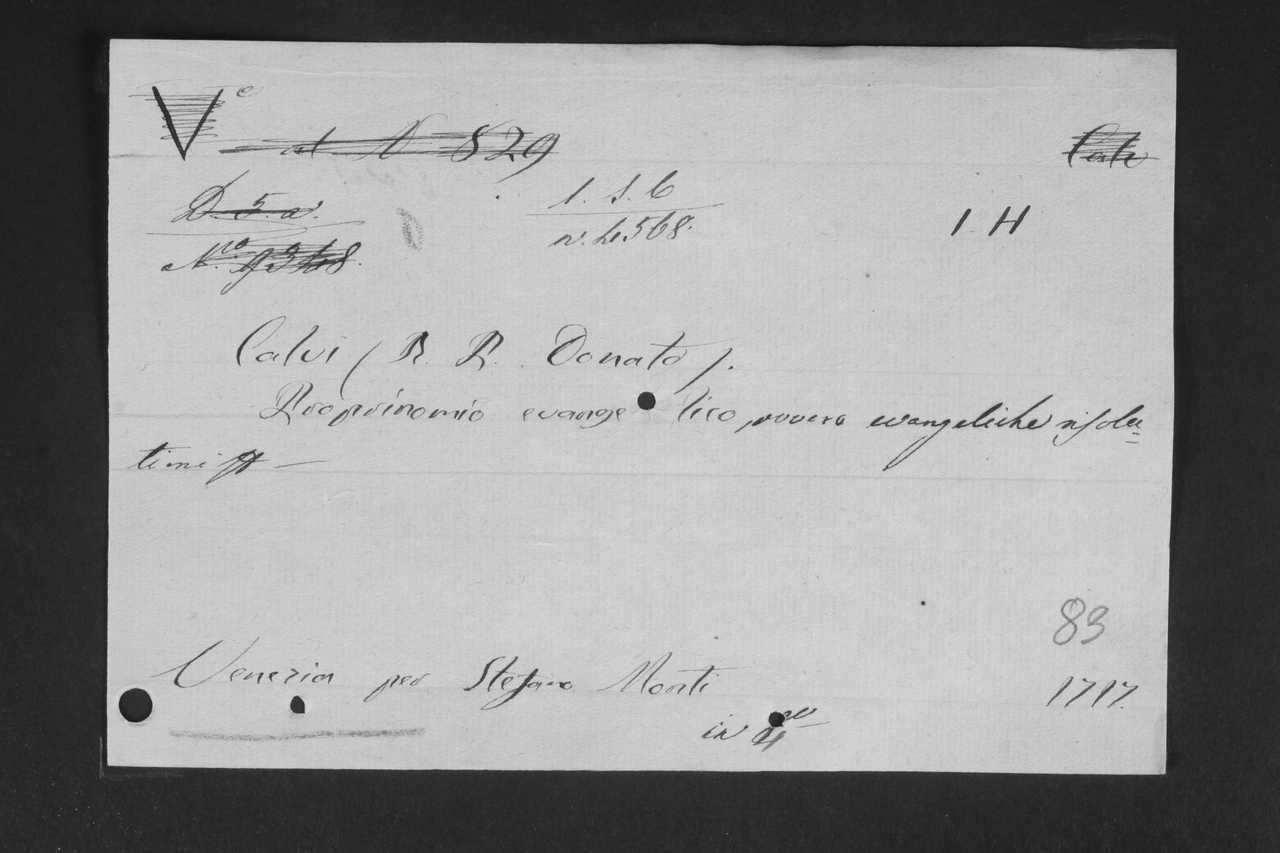 V e
cat. N 829
D. 5. a.
1. S. 6
I. H
N.ro 9348.
n. 4568.
Calvi ( R. P. Donato ).
Proprinomio evangelico, ovvero evangeliche risolu=
tioni
83
Venezia per Stefano Monti
1717.
in 4to